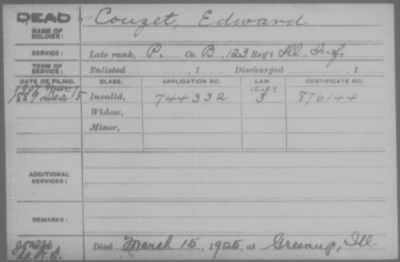 DEAD
NAME OF SOLDIER: Couzet, Edward
SERVICE: Late rank, P. Co. B, 123 Reg't Ill. Inf.
TERM OF SERVICE: Enlisted , 1 Discharged , 1
DATE OF FILING. CLASS. APPLICATION NO. LAW. CERTIFICATE NO.
Invalid, 744332 876144
Widow,
Minor,
ADDITIONAL SERVICES:
REMARKS:
Died March 15, 1925, at Greenup, Ill.